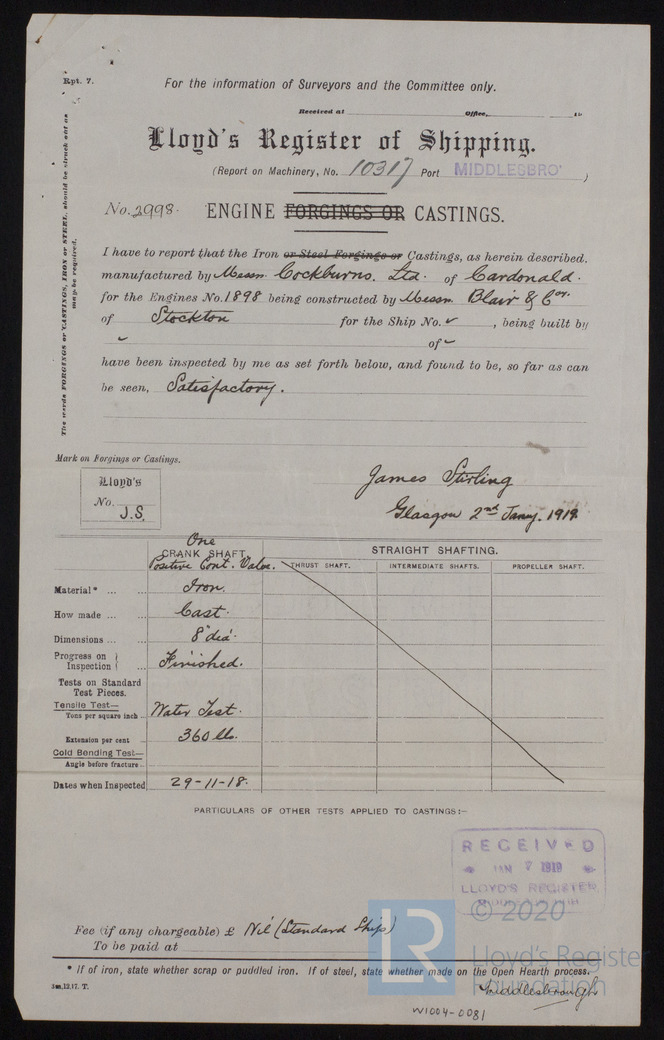 Rpt. 7.
For the information of Surveyors and the Committee only.
Received at Office, 19
Lloyd's Register of Shipping.
(Report on Machinery, No. 10317 Port MIDDLESBRO' )
No. 2998. ENGINE FORGINGS OR CASTINGS.
The words FORGINGS or CASTINGS, IRON or STEEL, should be struck out as
may be required.
I have to report that the Iron or Steel Forgings or Castings, as herein described,
manufactured by Messrs. Cockburns. Ltd. of Cardonald.
for the Engines No. 1898 being constructed by Messrs. Blair & Coy.
of Stockton for the Ship No. ✓ , being built by
✓ of ✓
have been inspected by me as set forth below, and found to be, so far as can
be seen, Satisfactory.
Mark on Forgings or Castings.
Lloyd's
No.
J.S.
James Stirling
Glasgow 2nd Jany. 1919.
One
CRANK SHAFT. STRAIGHT SHAFTING.
Positive Cont. Valve. THRUST SHAFT. INTERMEDIATE SHAFTS. PROPELLER SHAFT.
Material* ... ... Iron.
How made ... ... Cast.
Dimensions ... ... 8" dia.
Progress on
Inspection ... Finished.
Tests on Standard
Test Pieces.
Tensile Test— Water Test.
Tons per square inch ...
Extension per cent ... 360 lbs.
Cold Bending Test—
Angle before fracture ...
Dates when Inspected 29-11-18.
PARTICULARS OF OTHER TESTS APPLIED TO CASTINGS:—
RECEIVED
JAN 7 1919
LLOYD'S REGISTER
© 2020
Fee (if any chargeable) £ Nil (Standard Ship)
To be paid at
LR
Lloyd's Register
Foundation
* If of iron, state whether scrap or puddled iron. If of steel, state whether made on the Open Hearth process.
3m,12,17. T.
Middlesbrough
W1004-0081